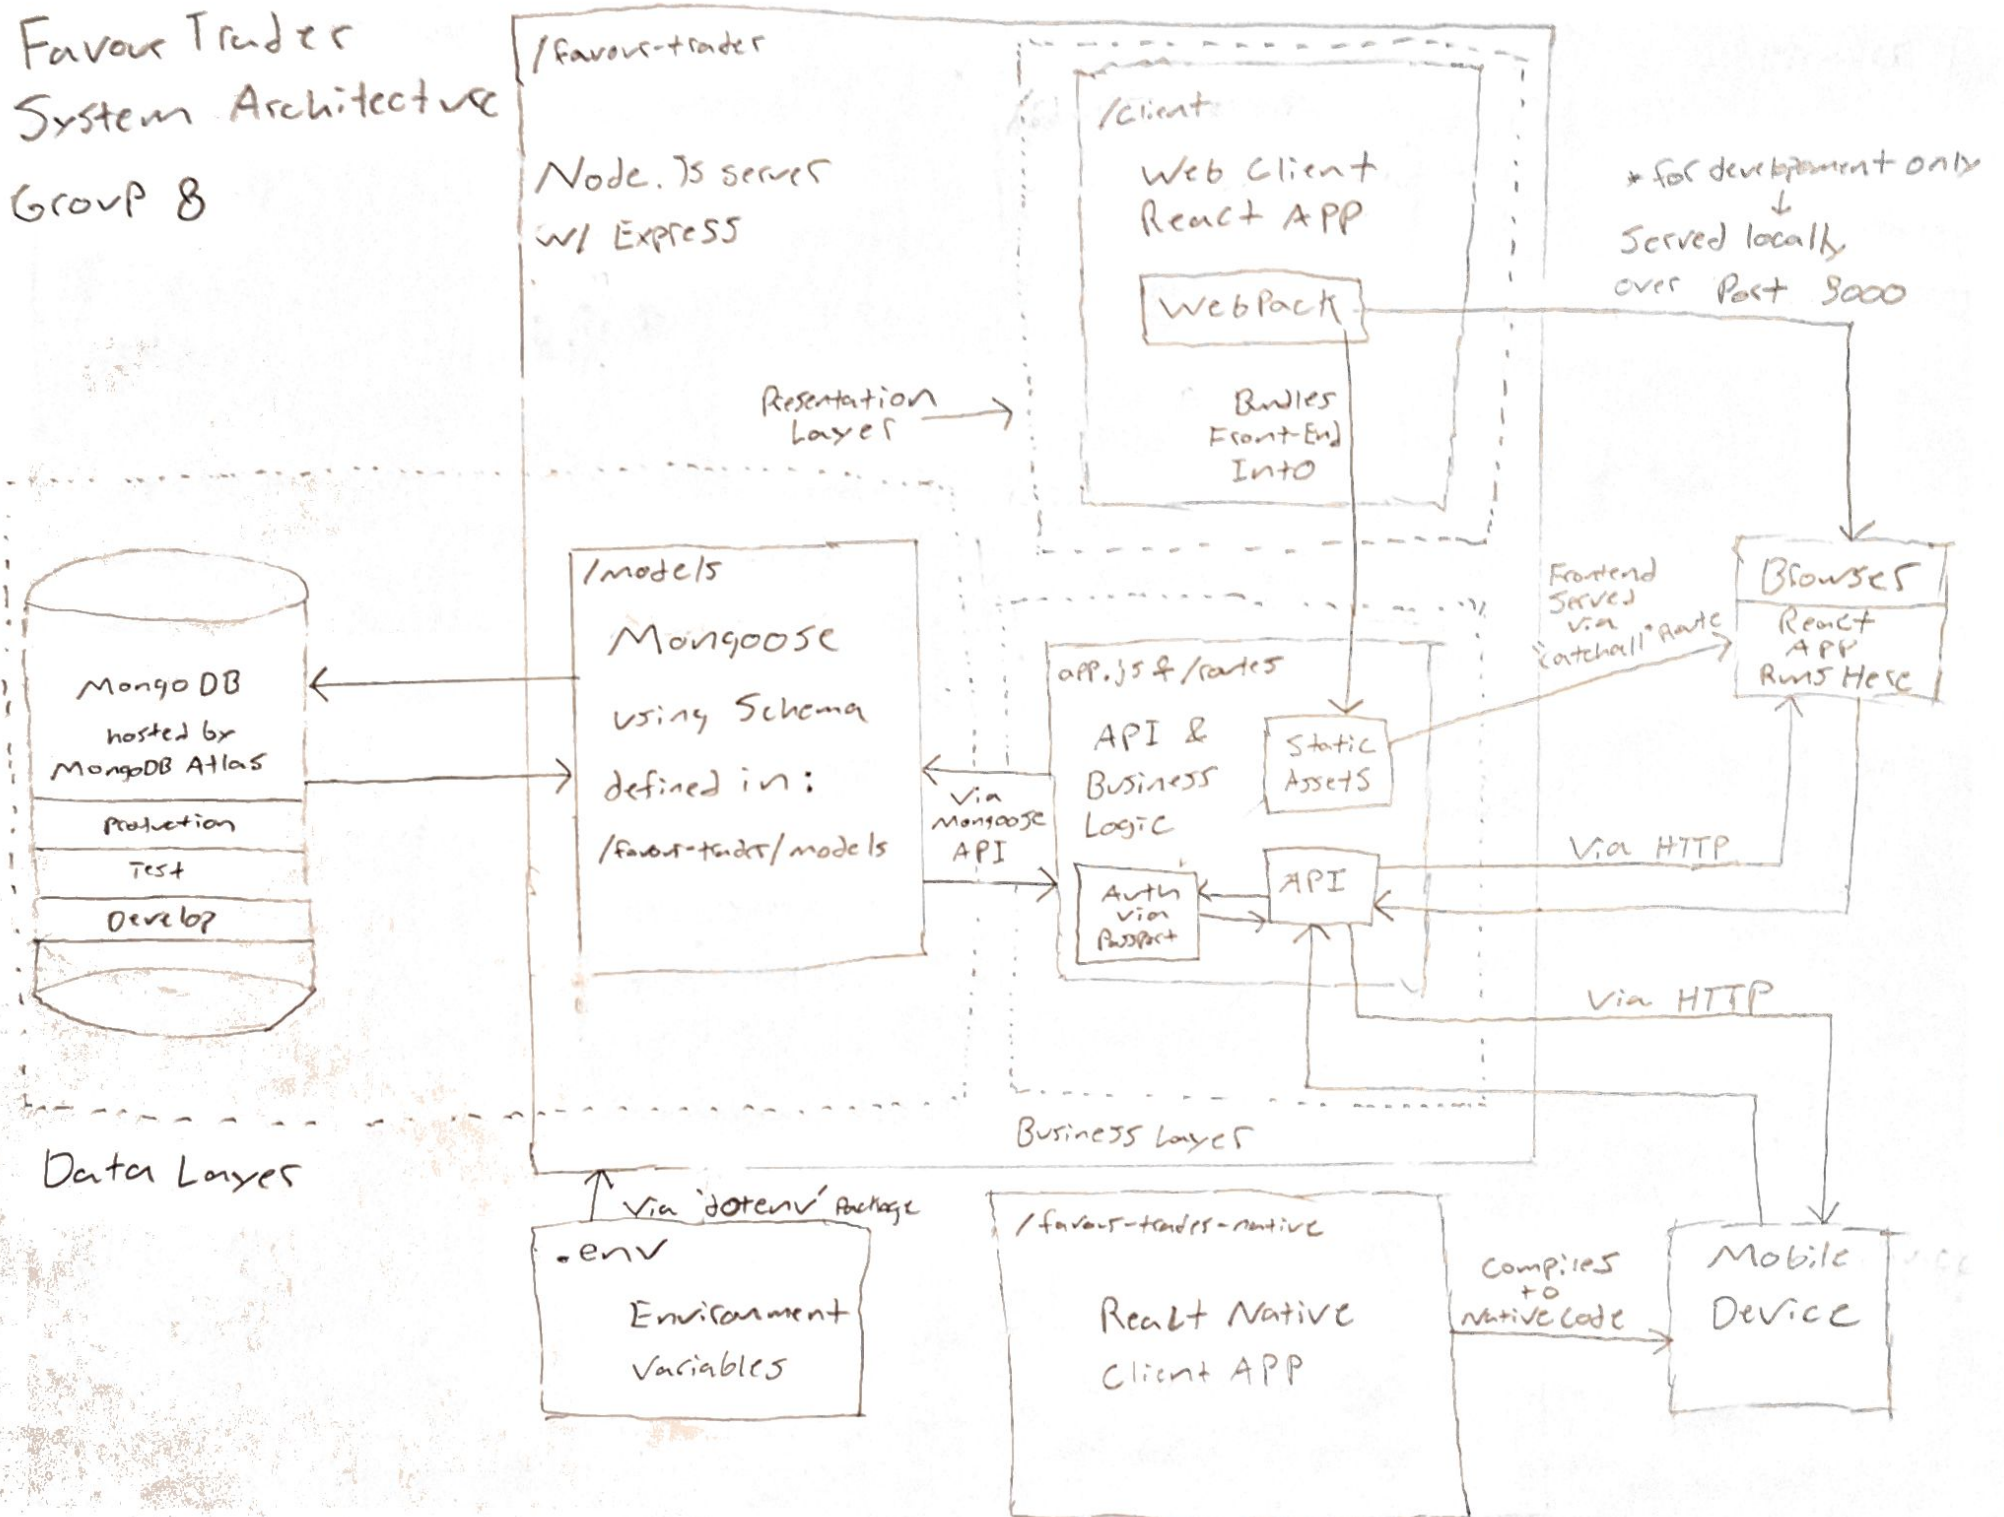 Favour Trader
System Architecture
Group 8
/favour-trader
Node.js server
w/ Express
/client
Web Client
React APP
WebPack
Bundles
Front-End
Into
* for development only
Served locally
over Port 3000
Presentation
Layer
MongoDB
hosted by
MongoDB Atlas
Production
Test
Develop
Data Layer
/models
Mongoose
using Schema
defined in:
/favour-trader/models
Via
Mongoose
API
app.js & /routes
API &
Business
Logic
Static
Assets
Auth
via
Passport
API
Business Layer
Frontend
Served
via
"catchall" Route
Browser
React
APP
Runs Here
Via HTTP
Via HTTP
Via 'dotenv' Package
.env
Environment
Variables
/favour-trader-native
React Native
Client APP
Compiles
to
Native Code
Mobile
Device